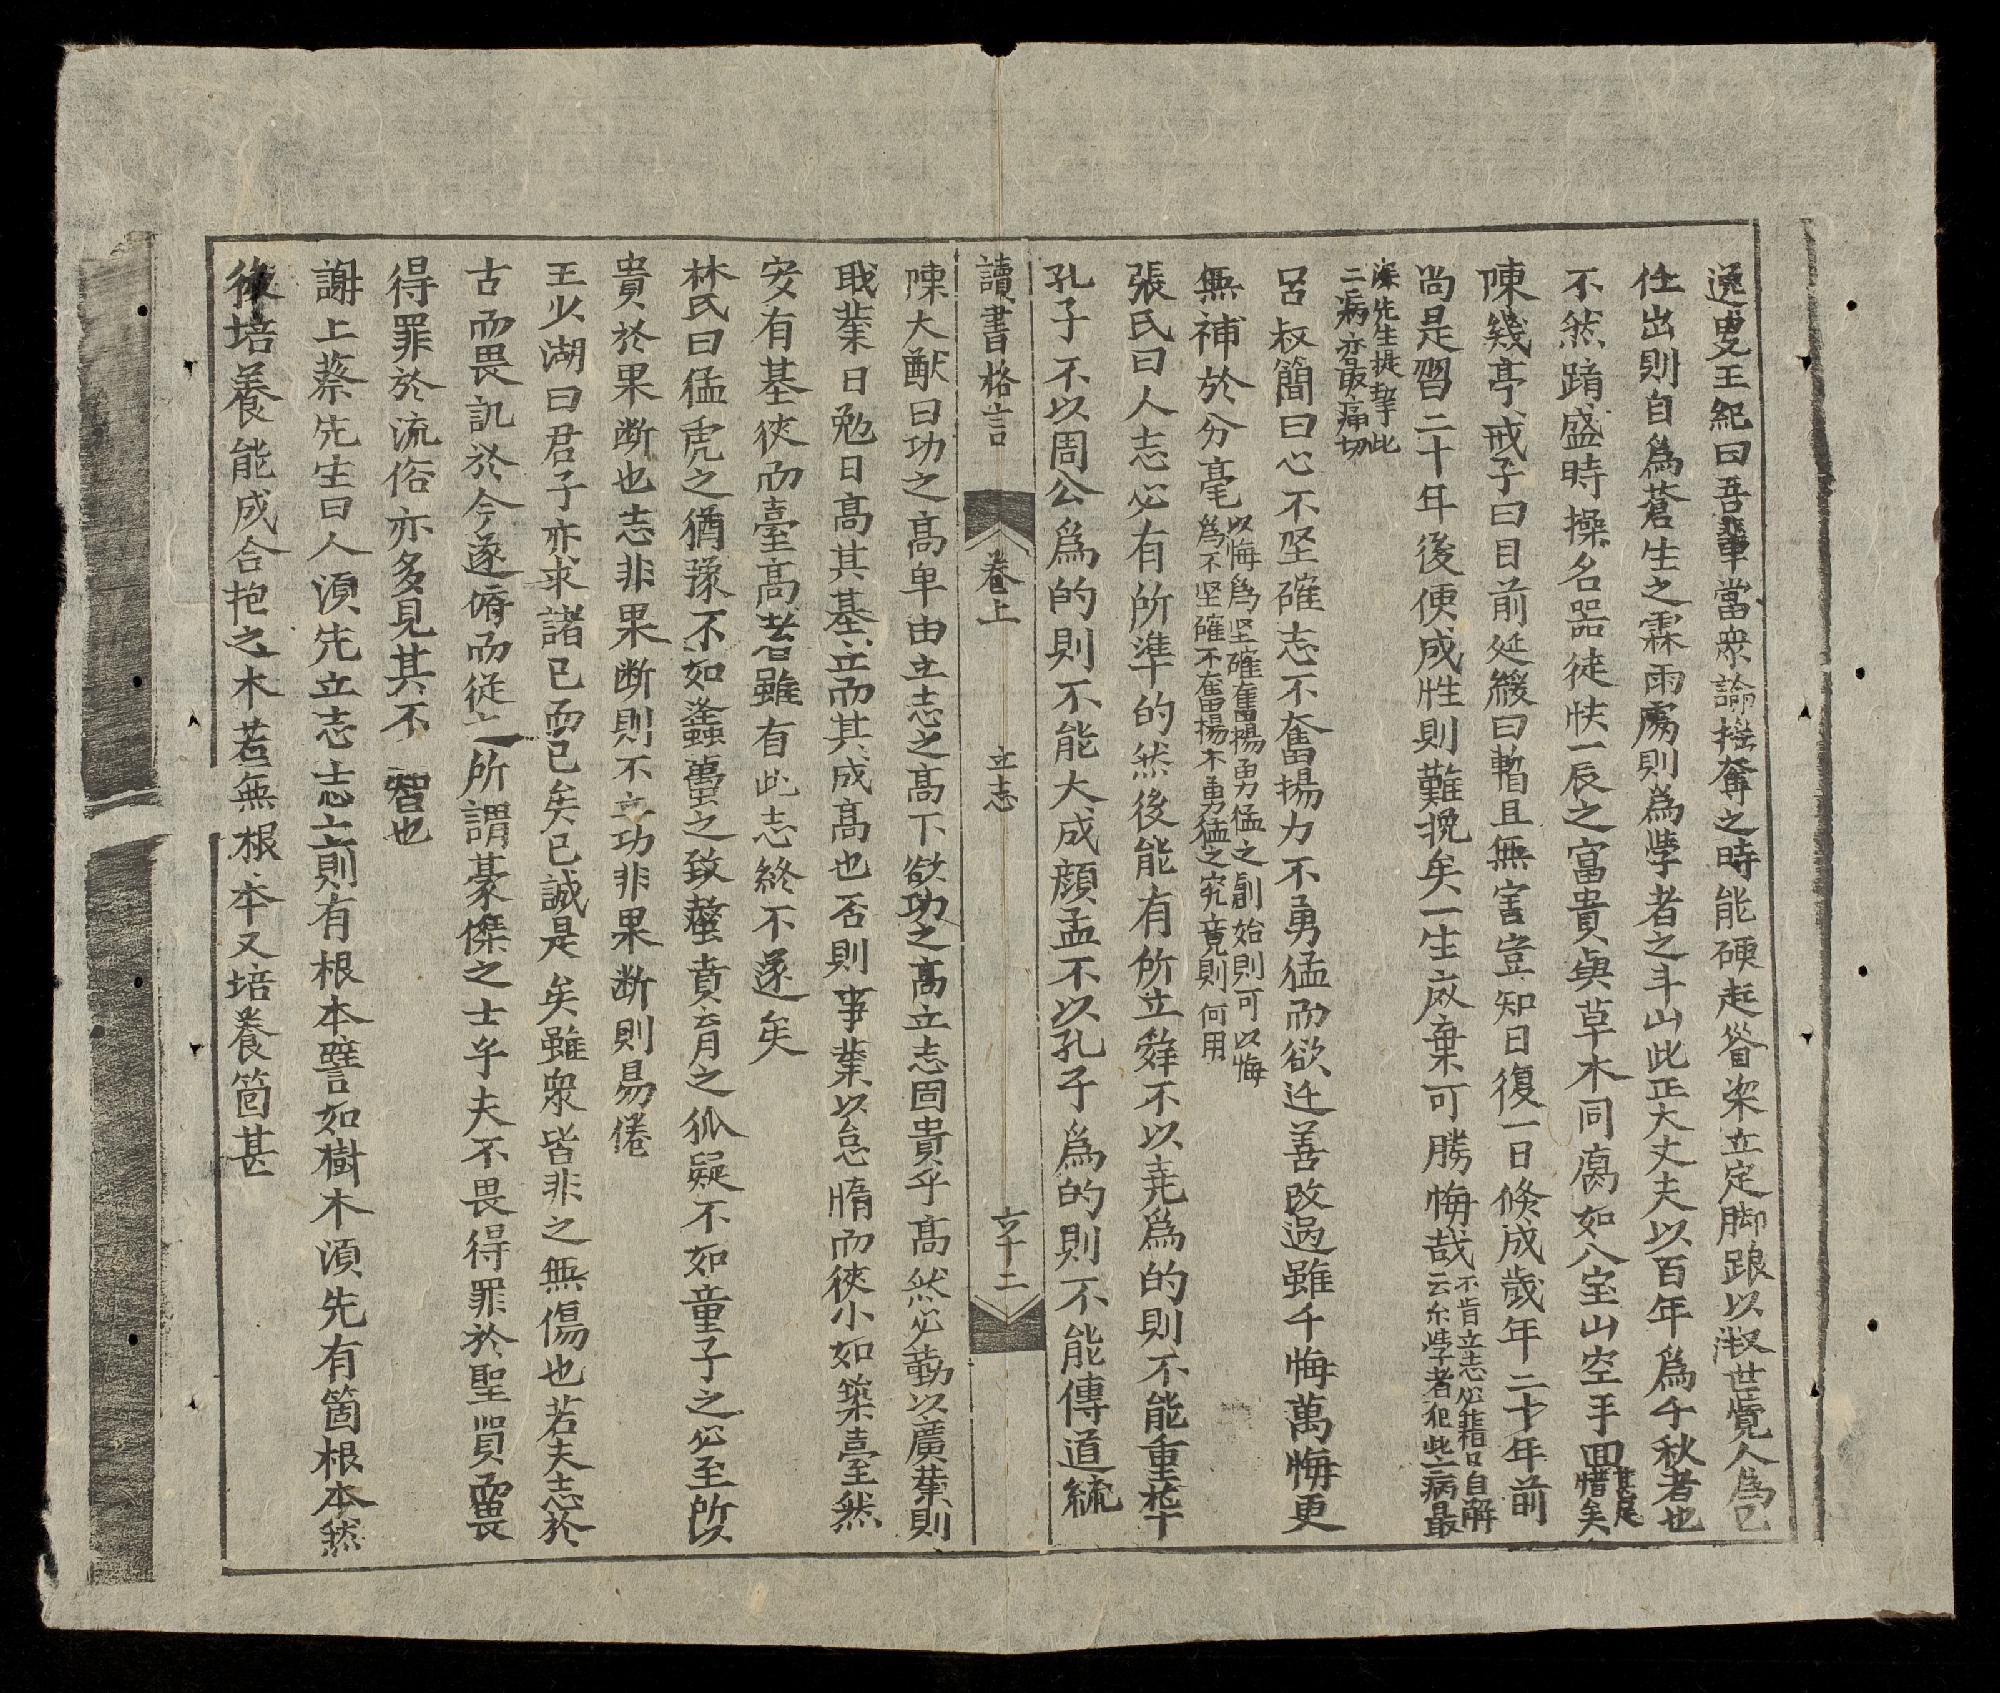 逸叟王紀曰吾輩當衆論搖奪之時能硬起脊梁立定脚跟以淑世覺人為己
任出則自爲蒼生之霖雨處則爲學者之斗山此正大丈夫以百年爲千秋者也
不然踏盛時操名器徒快一辰之富貴與草木同腐如入宝山空手回
惜矣
陳幾亭戒子曰目前延緩曰暫且無害豈知日復一日倐成歲年二十年前
尚是習二十年後便成性則難挽矣一生廢棄可勝悔哉
不肯立志必藉口自解
云尓學者犯此病最
深先生提挈此
二病亦最痛切
呂叔簡曰心不坚確志不奮揚力不勇猛而欲迁善改過雖千悔萬悔更
無補於分毫
以悔爲坚確奮揚勇猛之創始則可以悔
爲不坚確不奮揚不勇猛之究竟則何用
張氏曰人志必有所準的然後能有所立舜不以尭爲的則不能重華
孔子不以周公爲的則不能大成顔孟不以孔子爲的則不能傳道統
讀書格言
卷上
立志
六十二
陳大猷曰功之高卑由立志之高下欲功之高立志固貴乎高然必勤以廣業則
戢業日勉日高其基立而其成高也否則事業以怠惰而狹小如築臺然
安有基狹而臺高者雖有此志終不遂矣
林氏曰猛虎之猶豫不如蠭蠆之致螫賁育之狐疑不如童子之必至所以
貴於果断也志非果断則不立功非果断則易倦
王少湖曰君子亦求諸已而已矣已誠是矣雖衆皆非之無傷也若夫志於
古而畏訕於今遂脩而從之所謂豪傑之士乎夫不畏得罪於聖賢而畏
得罪於流俗亦多見其不智也
謝上蔡先生曰人湏先立志志立則有根本譬如樹木湏先有箇根本然
後培養能成合抱之木若無根本又培養箇甚